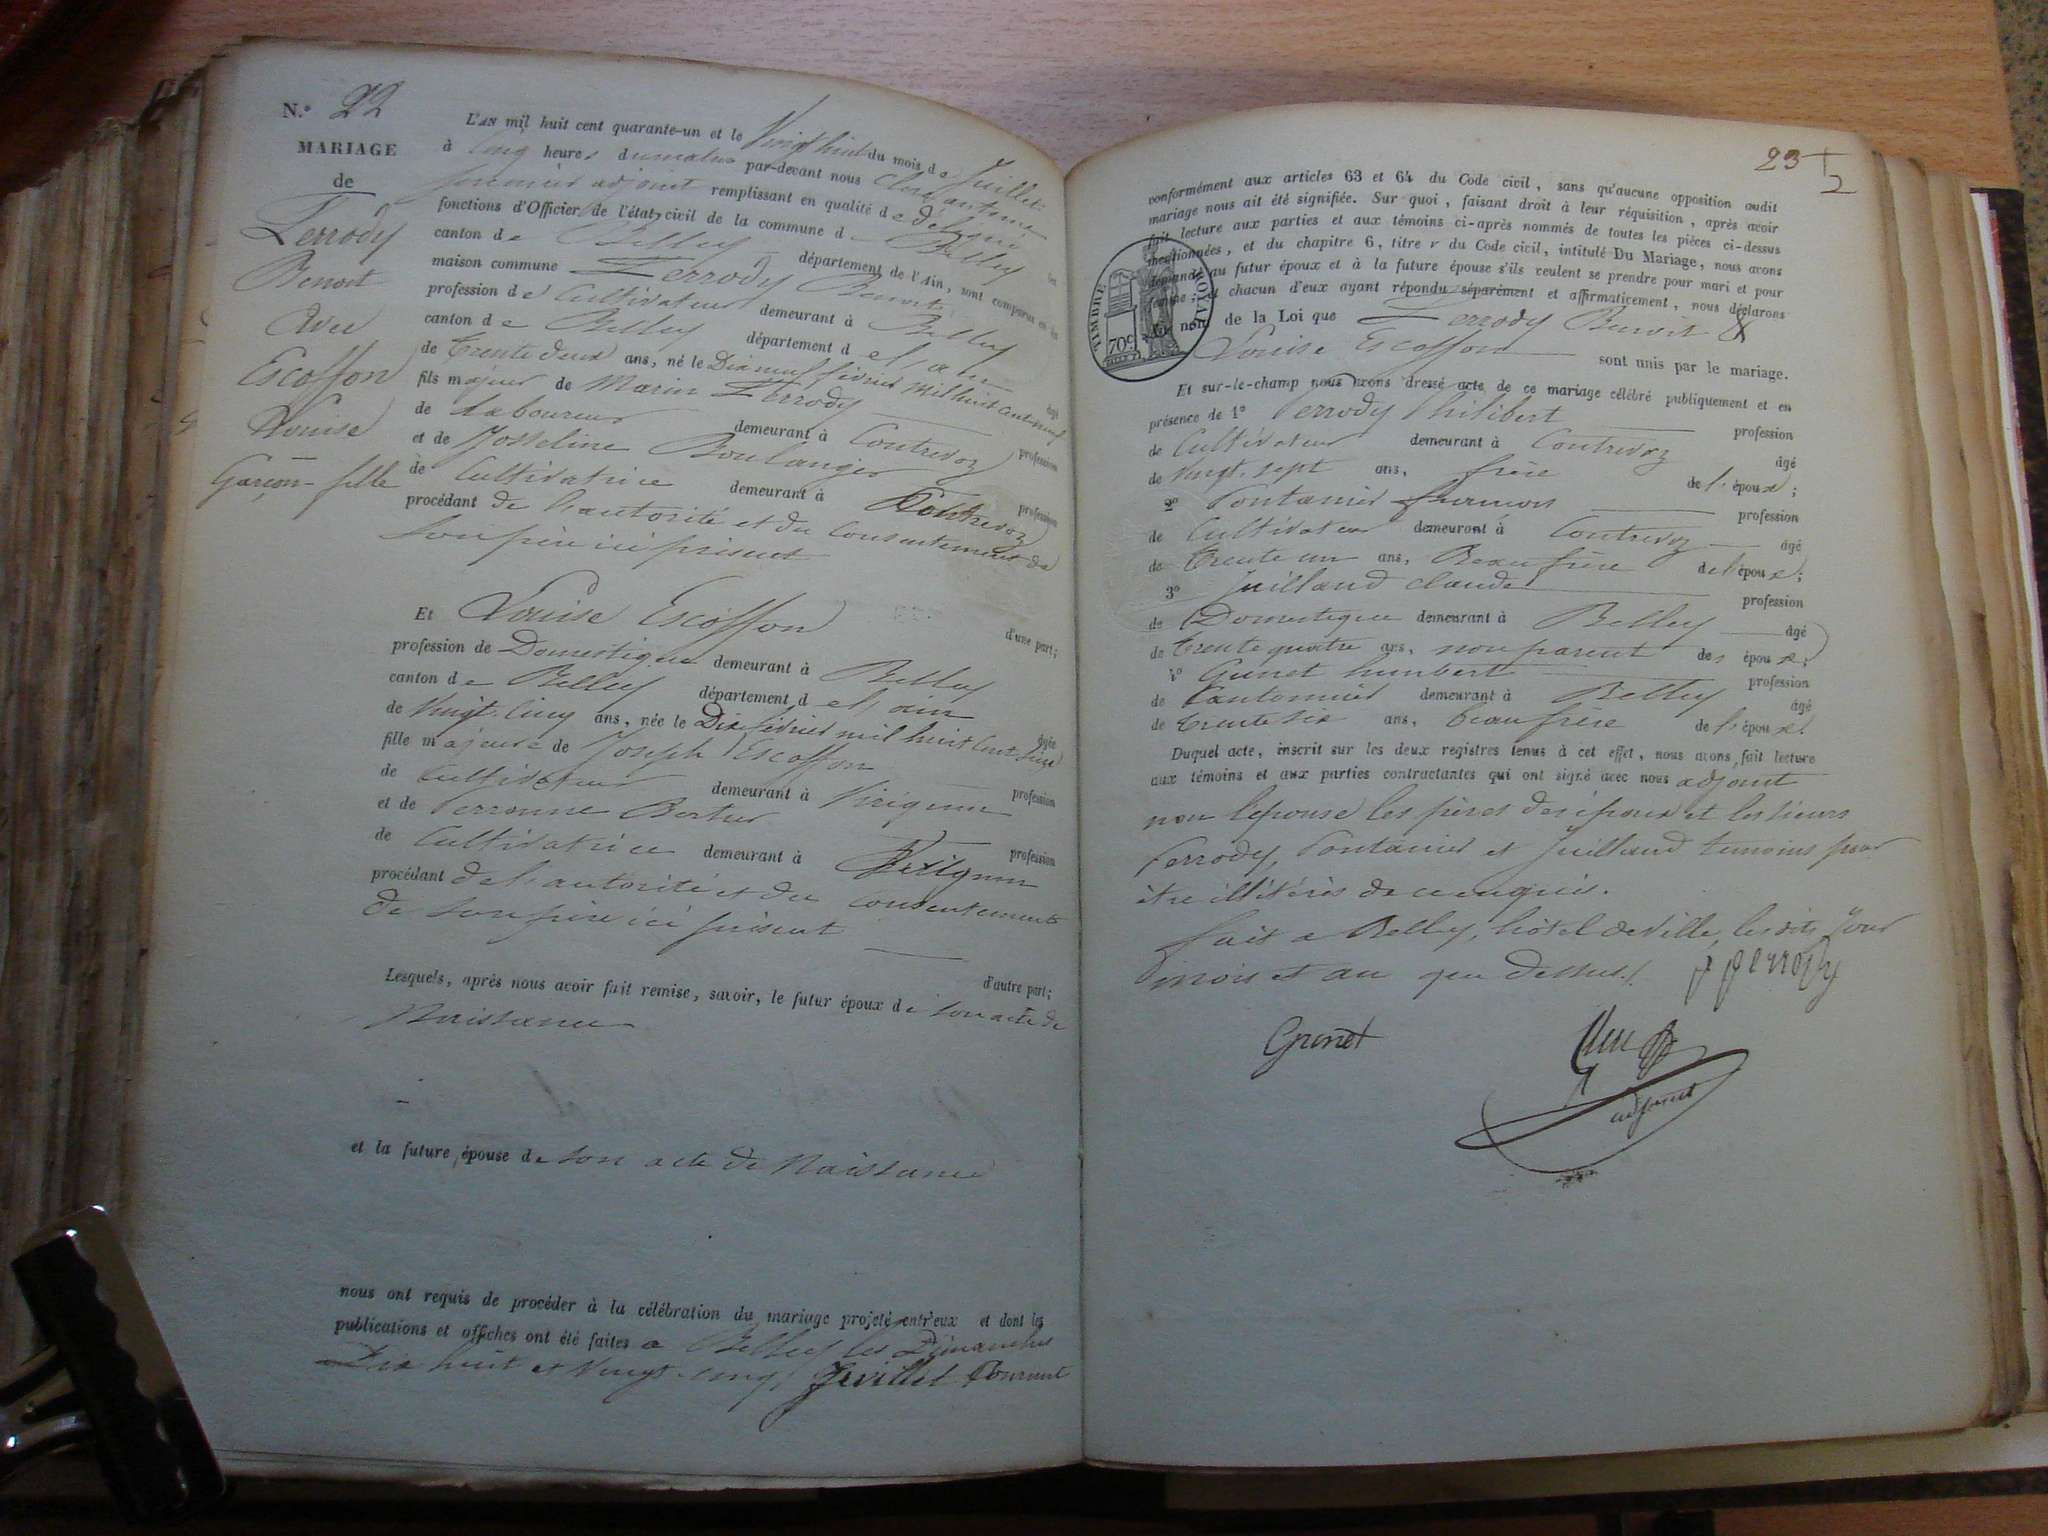 N.° 22
MARIAGE
de
Ferrody
Benoit
Avec
Escoffon
Louise
Garçon - fille
L'AN mil huit cent quarante-un et le Vingt huit du mois de Juillet
à Cinq heures du matin par-devant nous antoine
premier adjoint remplissant en qualité de délégué les
fonctions d'Officier de l'état civil de la commune d Belley
canton de Belley département de l'Ain, sont comparus en la
maison commune Ferrody Benoit
profession de Cultivateur demeurant à Belley
canton de Belley département de l'ain âgé
de trente deux ans, né le Dix neuf février mil huit cent neuf
fils majeur de Marin Ferrody profession
de Laboureur demeurant à Contrevoz
et de Josseline Boulanger profession
de Cultivatrice demeurant à Contrevoz
procédant de l'autorité et du Consentement de
son père ici présent
d'une part;
Et Louise Escoffon
profession de Domestique demeurant à Belley
canton de Belley département de l'ain âgée
de Vingt-Cinq ans, née le Dix février mil huit Cent Seize
fille majeure de Joseph Escoffon profession
de Cultivateur demeurant à Virignin
et de Perronne Bertier profession
de Cultivatrice demeurant à Virignin
procédant de l'autorité et du Consentement
de son père ici présent
d'autre part;
Lesquels, après nous avoir fait remise, savoir, le futur époux de son acte de
Naissance
et la future épouse de son acte de Naissance
nous ont requis de procéder à la célébration du mariage projeté entr'eux et dont les
publications et affiches ont été faites a Belley les Dimanches
Dix huit et Vingt-cinq Juillet Courant
23
1/2
conformément aux articles 63 et 64 du Code civil, sans qu'aucune opposition audit
mariage nous ait été signifiée. Sur quoi, faisant droit à leur réquisition, après avoir
fait lecture aux parties et aux témoins ci-après nommés de toutes les pièces ci-dessus
mentionnées, et du chapitre 6, titre v du Code civil, intitulé Du Mariage, nous avons
demandé au futur époux et à la future épouse s'ils veulent se prendre pour mari et pour
femme; et chacun d'eux ayant répondu séparément et affirmativement, nous déclarons
Au nom de la Loi que Ferrody Benoit &
Louise Escoffon sont unis par le mariage.
TIMBRE ROYAL
70c
Et sur-le-champ nous avons dressé acte de ce mariage célébré publiquement et en
présence de 1° Ferrody Philibert profession
de Cultivateur demeurant à Contrevoz âgé
de Vingt-sept ans, frère de l'époux;
2° Pontanier françois profession
de Cultivateur demeurant à Contrevoz âgé
de trente un ans, Beau frère de l'époux;
3° Juilland claude profession
de Domestique demeurant à Belley âgé
de trente quatre ans, non parent des époux;
4° Gunet humbert profession
de Cantonnier demeurant à Belley âgé
de trente six ans, beau frère de l'époux.
Duquel acte, inscrit sur les deux registres tenus à cet effet, nous avons fait lecture
aux témoins et aux parties contractantes qui ont signé avec nous adjoint
non l'épouse les pères des époux et les sieurs
Ferrody, Pontanier et Juilland temoins pour
être illitérés de ce enquis.
fait a Belley, hôtel de ville, les dits Jour
mois et an que dessus.
ferrody
Gunet
adjoint